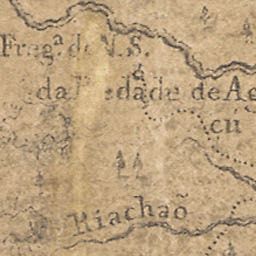 Freg.ª de N. S.
da Piedade de
cu
Riachaõ